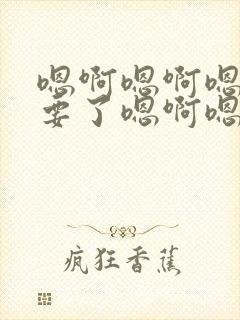 嗯啊嗯啊嗯
要了嗯啊嗯
疯狂香蕉